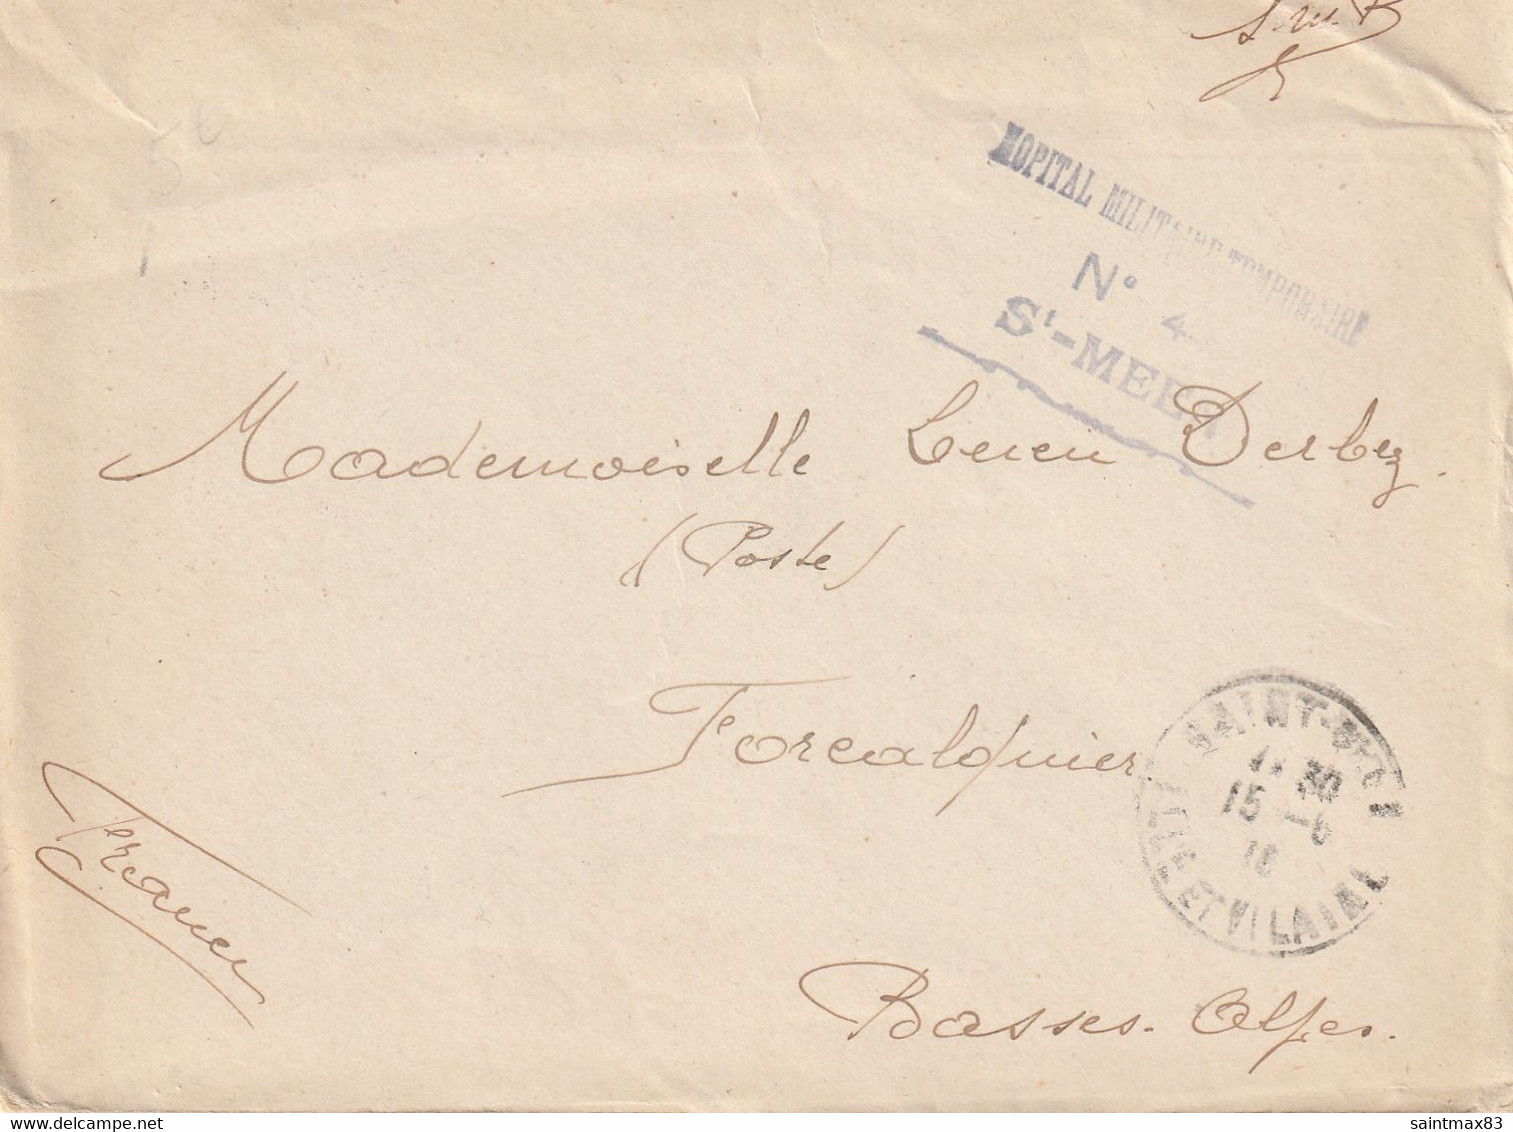 HOPITAL MILITAIRE TEMPORAIRE
N° 4
St-MEEN
Mademoiselle Derbez.
(Poste)
Forcalquier.
SAINT-MEEN
30
15 -6
16
ILLE ET VILAINE
France
Basses-Alpes.
www.delcampe.net
saintmax83